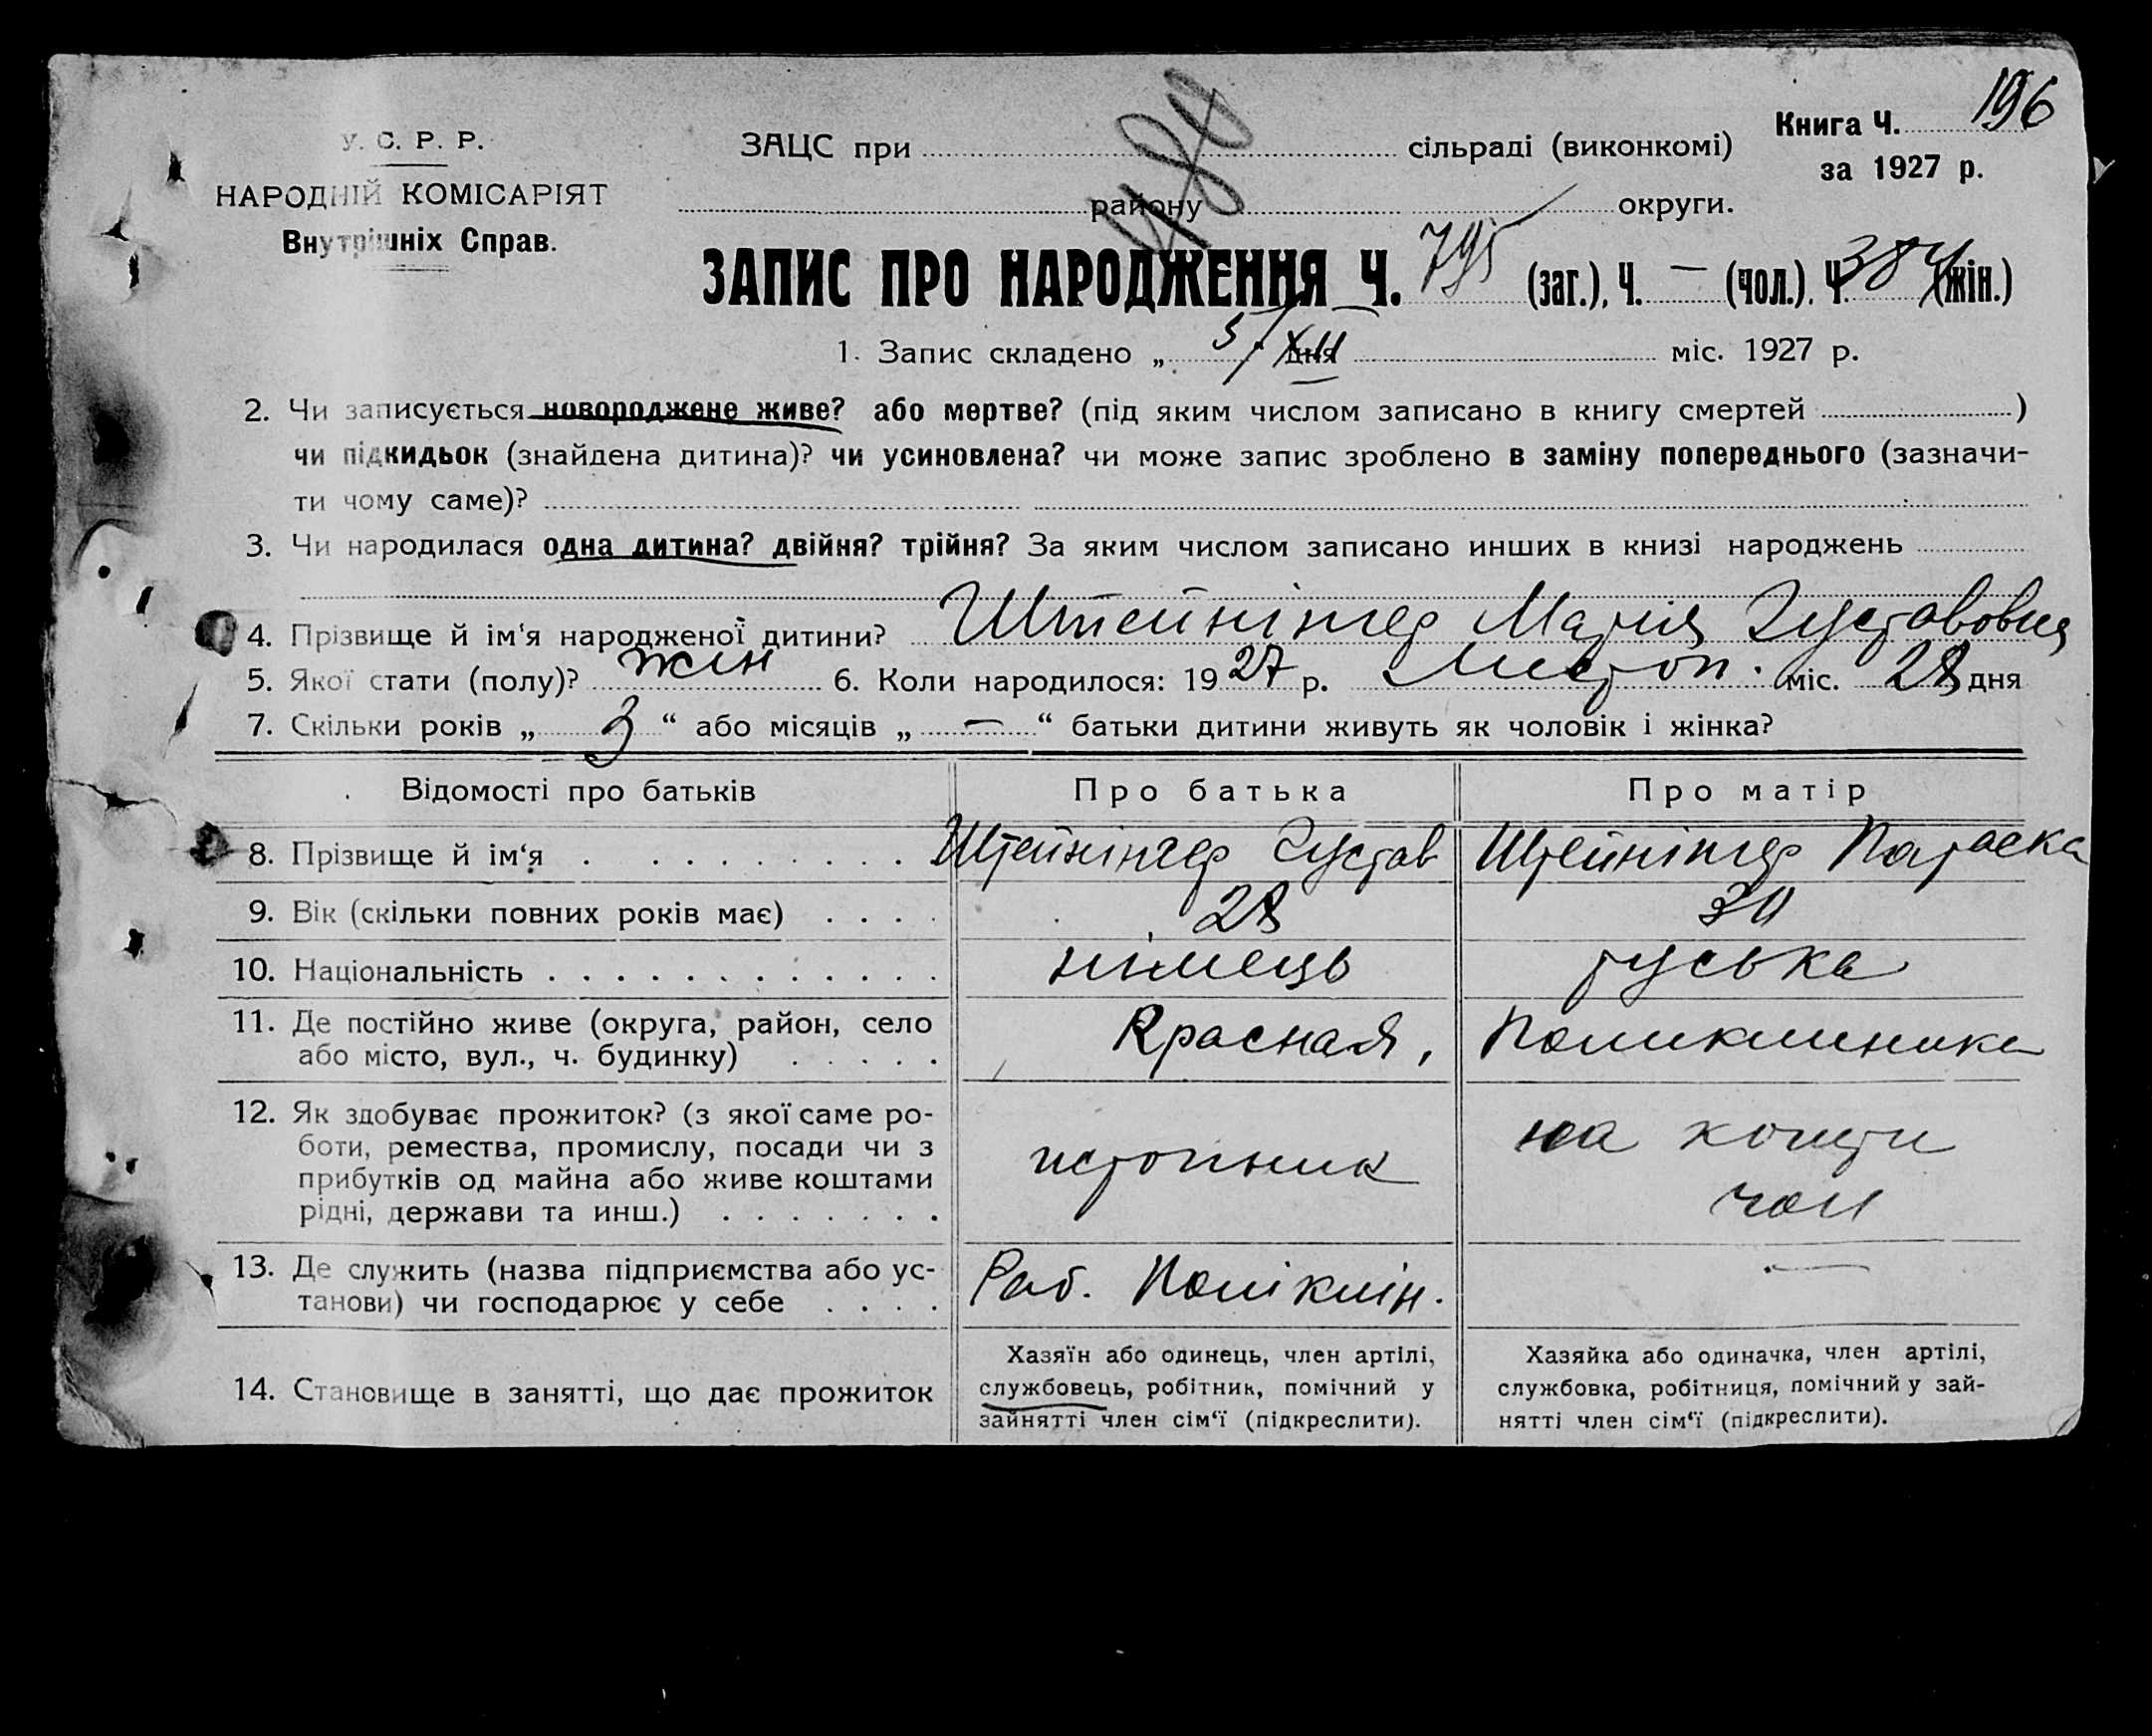 196
Книга Ч.
за 1927 р.
У. С. Р. Р.
НАРОДНІЙ КОМІСАРІЯТ
Внутрішніх Справ.
480
ЗАЦС при сільраді (виконкомі)
району округи.
ЗАПИС ПРО НАРОДЖЕННЯ Ч. 795 (заг.), Ч. — (чол.). Ч. 384 (жін.)
1. Запис складено „ 5/XII " дня міс. 1927 р.
2. Чи записується новороджене живе? або мертве? (під яким числом записано в книгу смертей )
чи підкидьок (знайдена дитина)? чи усиновлена? чи може запис зроблено в заміну попереднього (зазначи-
ти чому саме)?
3. Чи народилася одна дитина? двійня? трійня? За яким числом записано инших в книзі народжень
4. Прізвище й ім'я народженої дитини? Штейнінгер Марія Густавовна
5. Якої стати (полу)? жін 6. Коли народилося: 1927 р. Листоп. міс. 28 дня
7. Скільки років „ 3 “ або місяців „ — “ батьки дитини живуть як чоловік і жінка?
Відомості про батьків Про батька Про матір
8. Прізвище й ім‘я Штейнінгер Густав Штейнінгер Параска
9. Вік (скільки повних років має) 28 30
10. Національність німець руська
11. Де постійно живе (округа, район, село
або місто, вул., ч. будинку) Красная, Поликлиника
12. Як здобуває прожиток? (з якої саме ро-
боти, ремества, промислу, посади чи з
прибутків од майна або живе коштами
рідні, держави та инш.)
истопник
на кошти
чол
13. Де служить (назва підприємства або ус-
танови) чи господарює у себе
Раб. Поліклін. —
14. Становище в занятті, що дає прожиток
Хазяїн або одинець, член артілі,
службовець, робітник, помічний у
зайнятті член сім‘ї (підкреслити).
Хазяйка або одиначка, член артілі,
службовка, робітниця, помічний у зай-
нятті член сім‘ї (підкреслити).